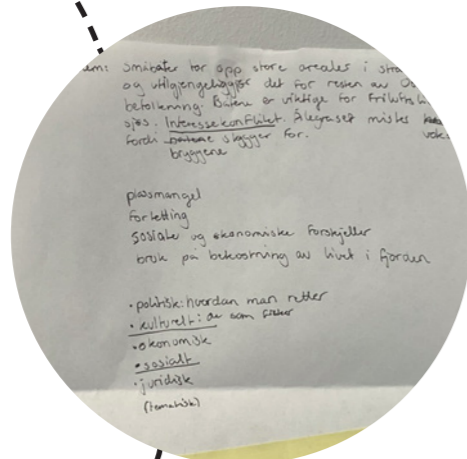 em: Småbåter tar opp store arealer i stra
og utilgjengeliggjør det for resten av Os
befolkning. Båtene er viktige for friluftsli
sjøs. Interessekonflikt. Ålegraset mistes
fordi båtene skygger for. vok
bryggene
plassmangel
Fortetting
sosiale og økonomiske forskjeller
bruk på bekostning av livet i fjorden
• politisk: hvordan man retter
• kulturelt: de som fisker
• økonomisk
• sosialt
• juridisk
(tematisk)